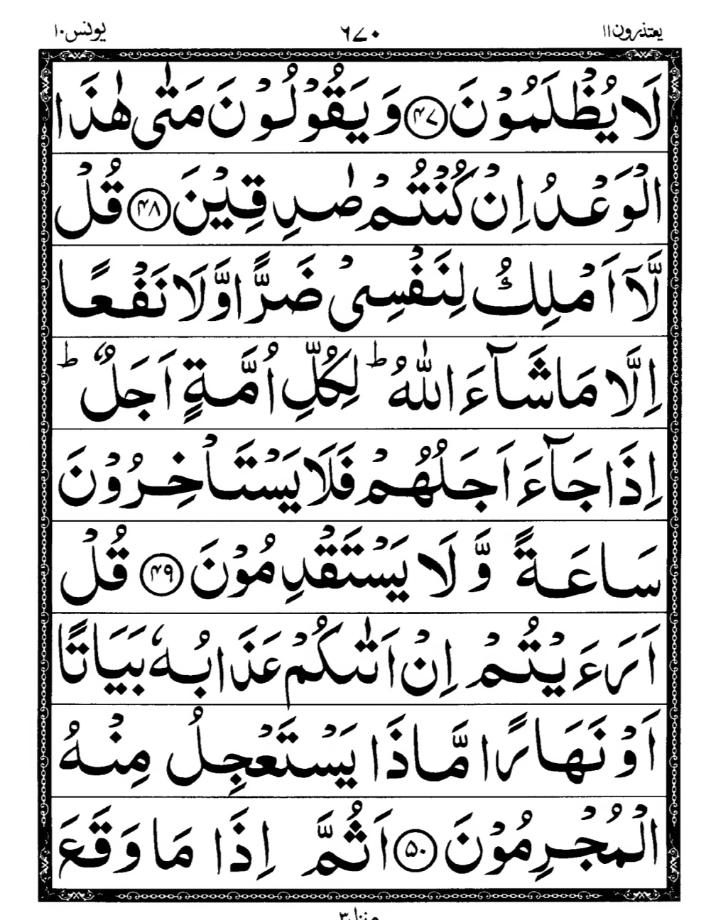 یعتذرون۱۱ ۶۷۰ یونس۱۰
لَا یُظْلَمُوْنَ ﴿۴۷﴾ وَ یَقُوْلُوْنَ مَتٰی هٰذَا
الْوَعْدُ اِنْ كُنْتُمْ صٰدِقِیْنَ ﴿۴۸﴾ قُلْ
لَّاۤ اَمْلِكُ لِنَفْسِیْ ضَرًّا وَّ لَا نَفْعًا
اِلَّا مَا شَآءَ اللّٰهُ ؕ لِكُلِّ اُمَّةٍ اَجَلٌ ؕ
اِذَا جَآءَ اَجَلُهُمْ فَلَا یَسْتَاْخِرُوْنَ
سَاعَةً وَّ لَا یَسْتَقْدِمُوْنَ ﴿۴۹﴾ قُلْ
اَرَءَیْتُمْ اِنْ اَتٰىكُمْ عَذَابُهٗ بَیَاتًا
اَوْ نَهَارًا مَّاذَا یَسْتَعْجِلُ مِنْهُ
الْمُجْرِمُوْنَ ﴿۵۰﴾ اَثُمَّ اِذَا مَا وَقَعَ
منزل۳